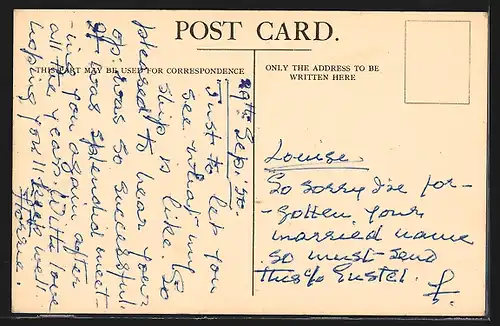 POST CARD.
THIS PART MAY BE USED FOR CORRESPONDENCE
ONLY THE ADDRESS TO BE
WRITTEN HERE
29th Sep. 50.
Just to let you
see what my
ship is like. So
pleased to hear your
op: was so successful
It was splendid meet-
-ing you again after
all the years. With love
hoping you'll keep well.
Louise
So sorry I've for-
-gotten your
married name
so must send
this c/o